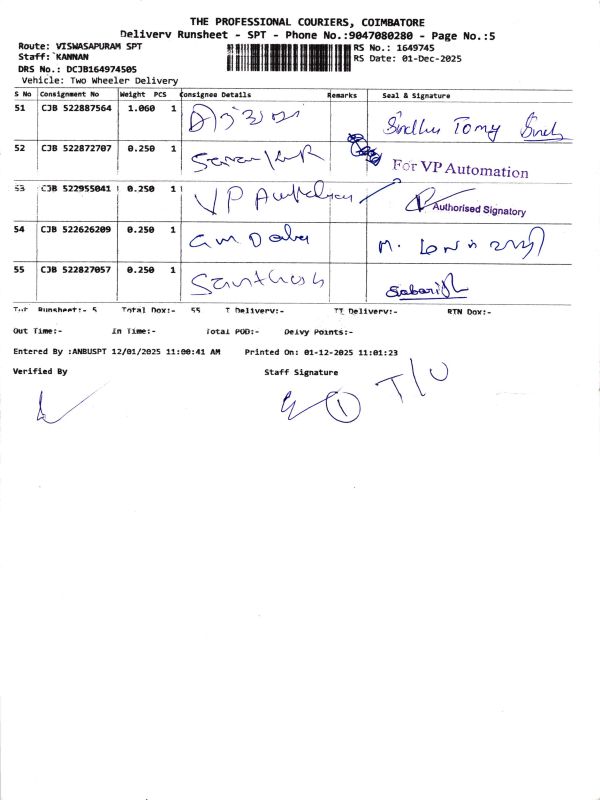 THE PROFESSIONAL COURIERS, COIMBATORE
Delivery Runsheet - SPT - Phone No.:9047080280 - Page No.:5
Route: VISWASAPURAM SPT
RS No.: 1649745
Staff:`KANNAN
RS Date: 01-Dec-2025
DRS No.: DCJB164974505
Vehicle: Two Wheeler Delivery
S No Consignment No Weight PCS Consignee Details Remarks Seal & Signature
51 CJB 522887564 1.060 1 Sindhu Tomy
52 CJB 522872707 0.250 1
For VP Automation
53 CJB 522955041 0.250 1 VP
Authorised Signatory
54 CJB 522626209 0.250 1 M.
55 CJB 522827057 0.250 1 Santhosh
Tot Runsheet:- 5 Total Dox:- 55 T Delivery:- TT Delivery:- RTN Dox:-
Out Time:- In Time:- Total POD:- Delvy Points:-
Entered By :ANBUSPT 12/01/2025 11:00:41 AM Printed On: 01-12-2025 11:01:23
Verified By Staff Signature
1 T/U